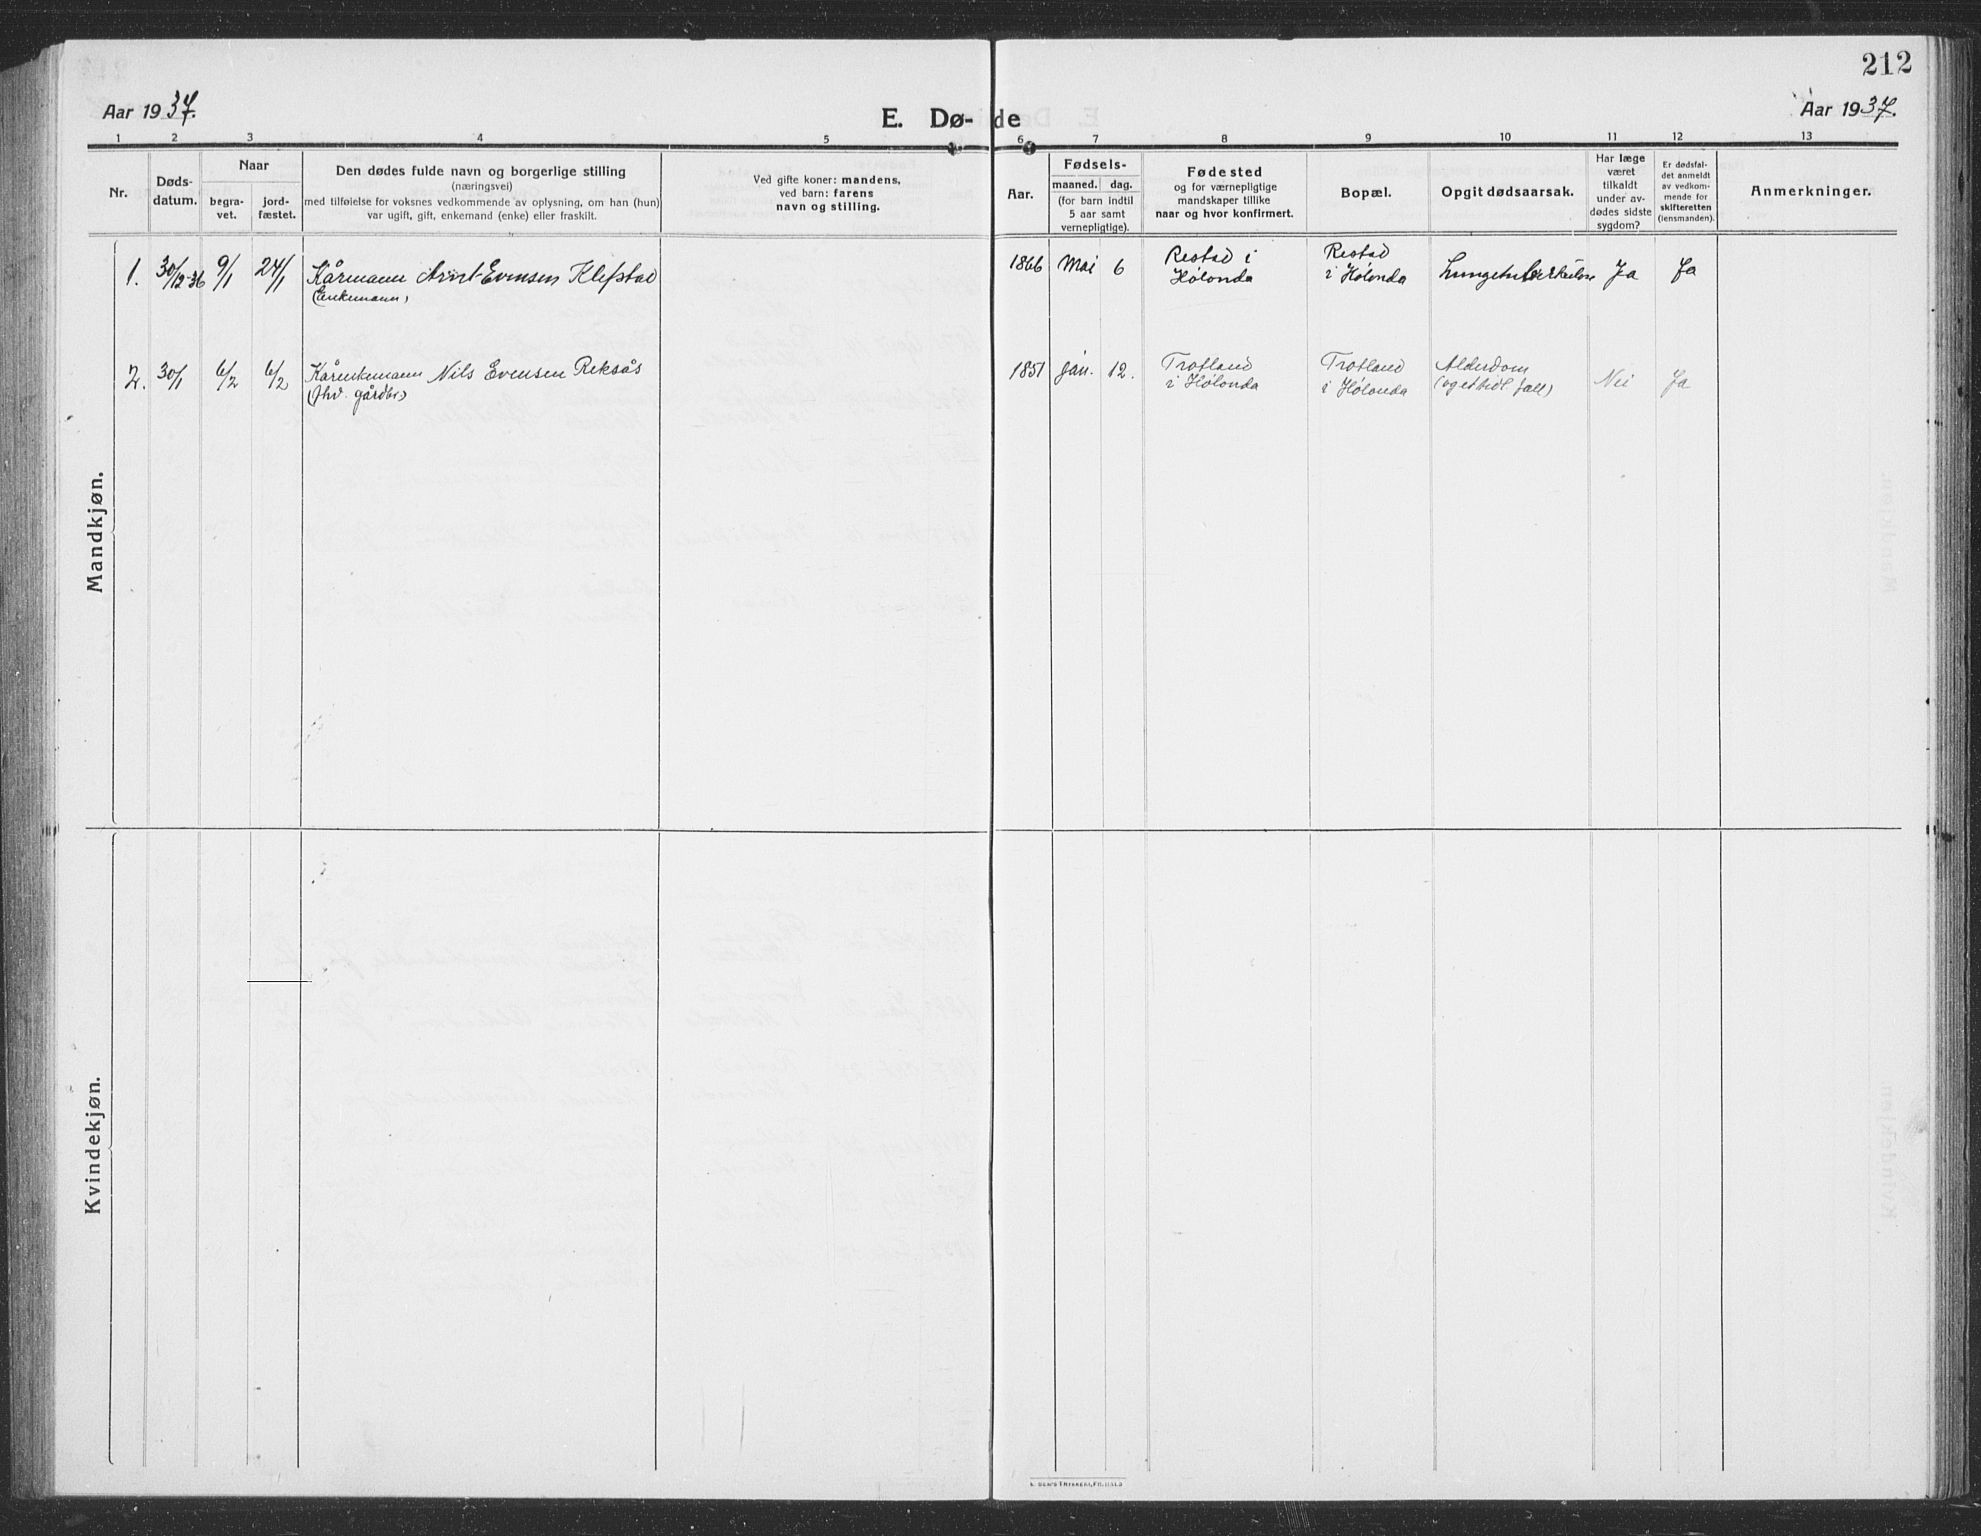 212
Aar 1937.
E. Dø-de
Aar 1937.
1 2 3 4 5 6 7 8 9 10 11 12 13
Nr.
Døds-
datum.
Naar
begra-
vet.
jord-
fæstet.
Den dødes fulde navn og borgerlige stilling
(næringsvei)
med tilføielse for voksnes vedkommende av oplysning, om han (hun)
var ugift, gift, enkemand (enke) eller fraskilt.
Ved gifte koner: mandens,
ved barn: farens
navn og stilling.
Aar.
Fødsels-
maaned. dag.
(for barn indtil
5 aar samt
vernepligtige).
Fødested
og for værnepligtige
mandskaper tillike
naar og hvor konfirmert.
Bopæl.
Opgit dødsaarsak.
Har læge
været
tilkaldt
under av-
dødes sidste
sygdom?
Er dødsfal-
det anmeldt
av vedkom-
mende for
skifteretten
(lensmanden).
Anmerkninger.
Mandkjøn.
1. 30/12-36 9/1 24/1 Kårmann Arnt Evensen Klefstad
(Enkemann)
1866 Mai 6
Restad i
Hølonda
Restad
i Hølonda
Lungetuberkulose Ja Ja
2. 30/1 6/2 6/2 Kårenkemann Nils Evensen Reksås
(fhv. gårdbr)
1851 jan. 12.
Trotland
i Hølonda
Trotland
i Hølonda
Alderdom
(og et fall)
Nei Ja
Kvindekjøn.